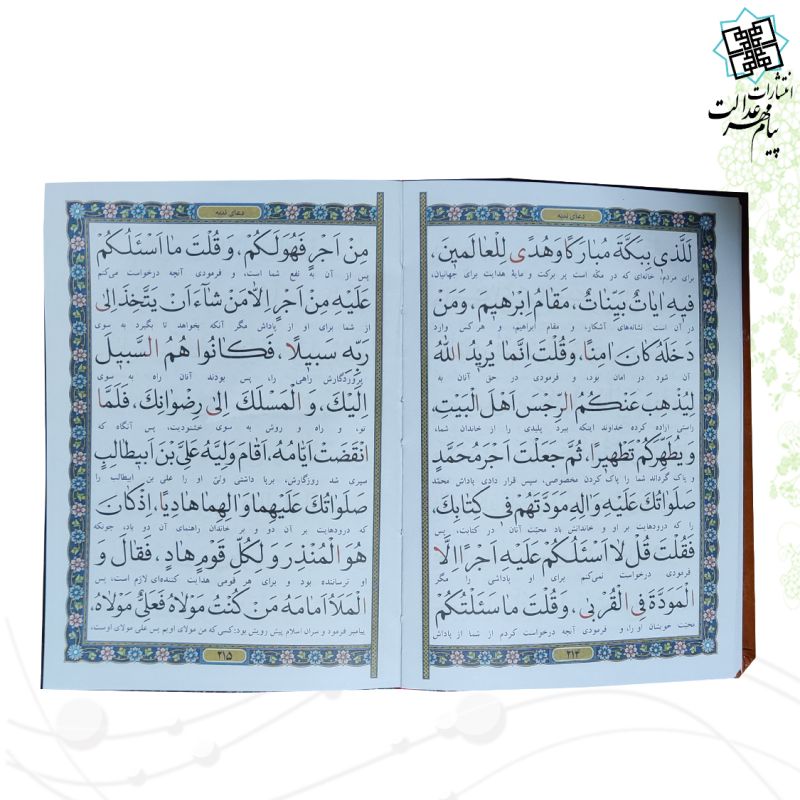 انتشارات
پیام مهر عدالت
دعای ندبه
لَلَّذی بِبَکَّةَ مُبارَکًا وَ هُدًی لِلْعالَمینَ،
برای مردم؛ خانه‌ای که در مکّه است پر برکت و مایهٔ هدایت برای جهانیان،
فیهِ ایاتٌ بَیِّناتٌ، مَقامُ اِبْرهیمَ، وَمَنْ
در آن است نشانه‌های آشکار، و مقام ابراهیم، و هر کس وارد
دَخَلَهُ کانَ امِنًا، وَ قُلْتَ اِنَّما یُریدُ اللّهُ
آن شود در امان بود، و فرمودی در حق آنان به
لِیُذْهِبَ عَنْکُمُ الرِّجْسَ اَهْلَ الْبَیْتِ،
راستی اراده کرده خداوند اینکه ببرد پلیدی را از خاندان شما،
وَ یُطَهِّرَکُمْ تَطْهیرًا، ثُمَّ جَعَلْتَ اَجْرَ مُحَمَّدٍ
و پاک گرداند شما را پاک کردن مخصوصی، سپس قرار دادی پاداش محمّد
صَلَواتُکَ عَلَیْهِ وَ الِهِ مَوَدَّتَهُمْ فی کِتابِکَ،
را که درودهایت بر او و خاندانش باد محبّت آنان در کتابت، پس
فَقُلْتَ قُلْ لا اَسْئَلُکُمْ عَلَیْهِ اَجْرًا اِلَّا
فرمودی درخواست نمی‌کنم برای او پاداشی را مگر
الْمَوَدَّةَ فِی الْقُرْبی، وَ قُلْتَ ما سَئَلْتُکُمْ
محبّت خویشان او را، و فرمودی آنچه درخواست کردم از شما از پاداش
۲۱۴
دعای ندبه
مِنْ اَجْرٍ فَهُوَ لَکُمْ، وَ قُلْتَ ما اَسْئَلُکُمْ
پس از آن به نفع شما است، و فرمودی آنچه درخواست می‌کنم
عَلَیْهِ مِنْ اَجْرٍ اِلاّ مَنْ شآءَ اَنْ یَتَّخِذَ اِلی
از شما برای او از پاداش مگر آنکه بخواهد تا بگیرد به سوی
رَبِّهِ سَبیلًا، فَکانُوا هُمُ السَّبیلَ
پروردگارش راهی را، پس بودند آنان راه به سوی
اِلَیْکَ، وَ الْمَسْلَکَ اِلی رِضْوانِکَ، فَلَمَّا
تو، و راه و روش به سوی خشنودیت، پس آنگاه که
انْقَضَتْ اَیّامُهُ، اَقامَ وَلِیَّهُ عَلِیَّ بْنَ اَبیطالِبٍ
سپری شد روزگارش، برپا داشتی ولیّ او را علی بن ابیطالب را
صَلَواتُکَ عَلَیْهِما وَ الِهِما هادِیًا، اِذْ کانَ
که درودهایت بر آن دو و بر خاندان راهنمای آن دو باد، چونکه
هُوَ الْمُنْذِرَ وَ لِکُلِّ قَوْمٍ هادٍ، فَقالَ وَ
او ترساننده بود و برای هر قومی هدایت کننده‌ای لازم است، پس
الْمَلَأُ اَمامَهُ مَنْ کُنْتُ مَوْلاهُ فَعَلِیٌّ مَوْلاهُ،
پیامبر فرمود و سران اسلام پیش رویش بود: کسی که من مولای اویم پس علی مولای اوست،
۲۱۵